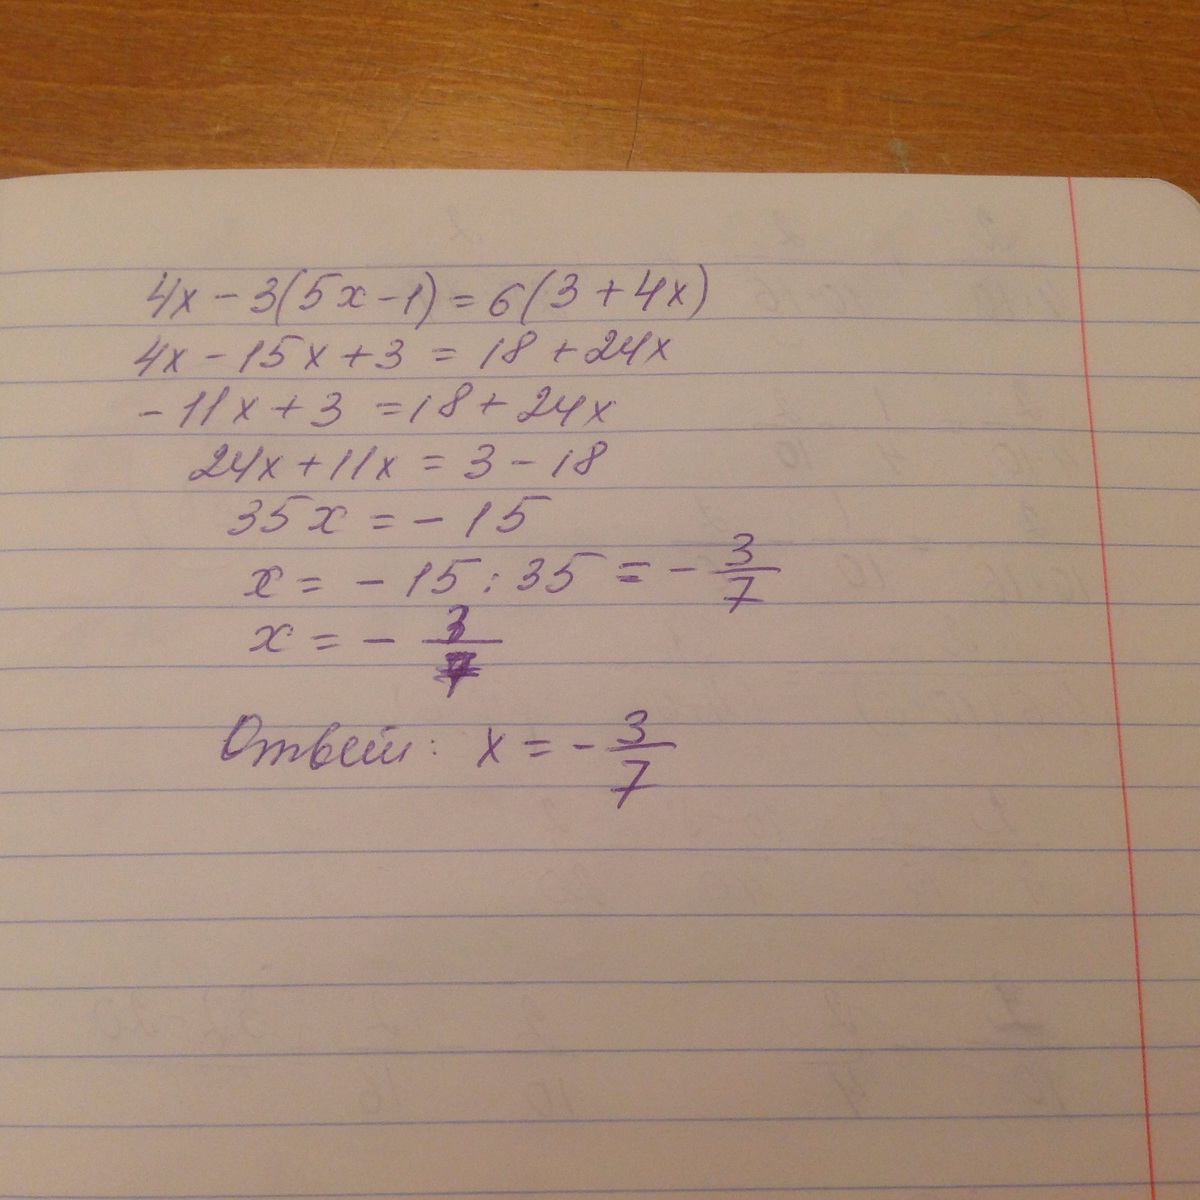 4x - 3(5x - 1) = 6(3 + 4x)
4x - 15x + 3 = 18 + 24x
- 11x + 3 = 18 + 24x
24x + 11x = 3 - 18
35x = - 15
x = - 15 : 35 = - 3/7
x = - 3/7
Ответ: x = - 3/7